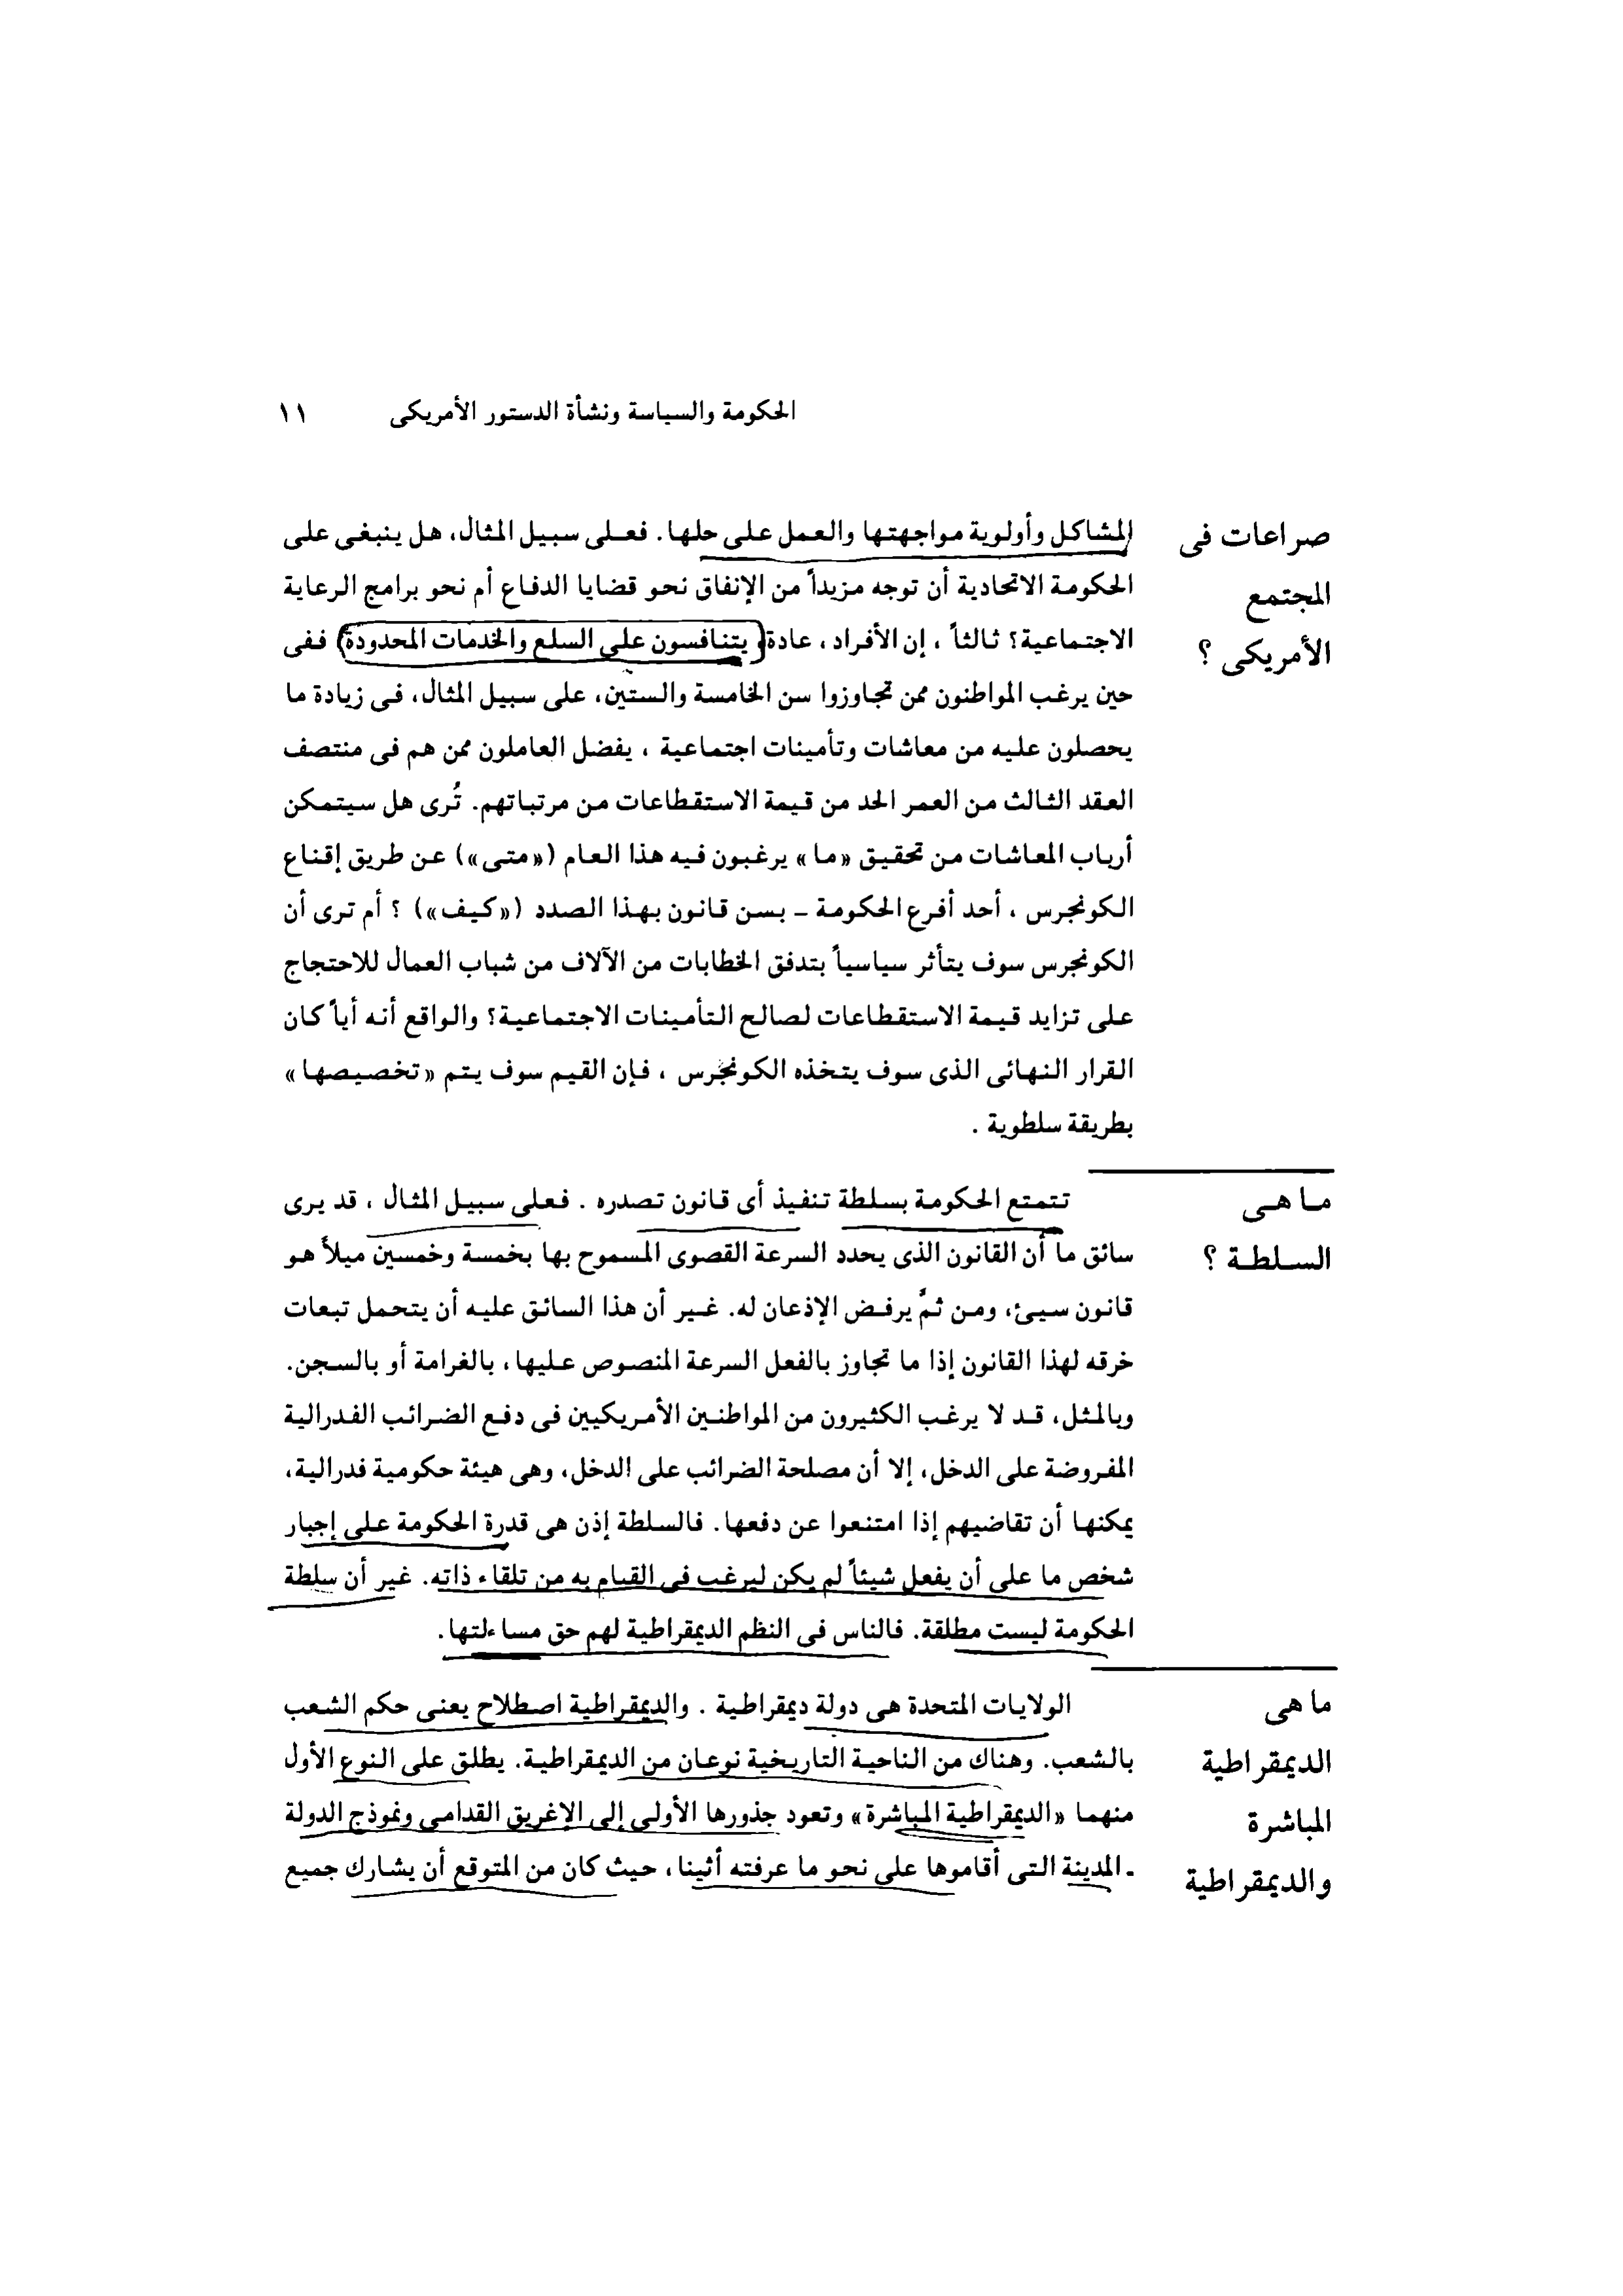 الحكومة والسياسة ونشأة الدستور الأمريكى ١١
صراعات فى
المجتمع
الأمريكى ؟
المشاكل وأولوية مواجهتها والعمل على حلها. فعلى سبيل المثال، هل ينبغى على
الحكومة الاتحادية أن توجه مزيداً من الإنفاق نحو قضايا الدفاع أم نحو برامج الرعاية
الاجتماعية؟ ثالثاً ، إن الأفراد ، عادة، يتنافسون على السلع والخدمات المحدودة) ففى
حين يرغب المواطنون ممن تجاوزوا سن الخامسة والستين، على سبيل المثال، فى زيادة ما
يحصلون عليه من معاشات وتأمينات اجتماعية ، يفضل العاملون ممن هم فى منتصف
العقد الثالث من العمر الحد من قيمة الاستقطاعات من مرتباتهم. تُرى هل سيتمكن
أرباب المعاشات من تحقيق «ما» يرغبون فيه هذا العام («متى») عن طريق إقناع
الكونجرس ، أحد أفرع الحكومة – بسن قانون بهذا الصدد («كيف») ؟ أم ترى أن
الكونجرس سوف يتأثر سياسياً بتدفق الخطابات من الآلاف من شباب العمال للاحتجاج
على تزايد قيمة الاستقطاعات لصالح التأمينات الاجتماعية؟ والواقع أنه أياً كان
القرار النهائى الذى سوف يتخذه الكونجرس ، فإن القيم سوف يتم «تخصيصها»
بطريقة سلطوية .
ما هى
السلطة ؟
تتمتع الحكومة بسلطة تنفيذ أى قانون تصدره . فعلى سبيل المثال ، قد يرى
سائق ما أن القانون الذى يحدد السرعة القصوى المسموح بها بخمسة وخمسين ميلاً هو
قانون سيئ، ومن ثمَّ يرفض الإذعان له. غير أن هذا السائق عليه أن يتحمل تبعات
خرقه لهذا القانون إذا ما تجاوز بالفعل السرعة المنصوص عليها، بالغرامة أو بالسجن.
وبالمثل، قد لا يرغب الكثيرون من المواطنين الأمريكيين فى دفع الضرائب الفدرالية
المفروضة على الدخل، إلا أن مصلحة الضرائب على الدخل، وهى هيئة حكومية فدرالية،
يمكنها أن تقاضيهم إذا امتنعوا عن دفعها. فالسلطة إذن هى قدرة الحكومة على إجبار
شخص ما على أن يفعل شيئاً لم يكن ليرغب فى القيام به من تلقاء ذاته. غير أن سلطة
الحكومة ليست مطلقة. فالناس فى النظم الديمقراطية لهم حق مساءلتها.
ما هى
الديمقراطية
المباشرة
والديمقراطية
الولايات المتحدة هى دولة ديمقراطية . والديمقراطية اصطلاح يعنى حكم الشعب
بالشعب. وهناك من الناحية التاريخية نوعان من الديمقراطية. يطلق على النوع الأول
منهما «الديمقراطية المباشرة» وتعود جذورها الأولى إلى الإغريق القدامى ونموذج الدولة
- المدينة التى أقاموها على نحو ما عرفته أثينا، حيث كان من المتوقع أن يشارك جميع